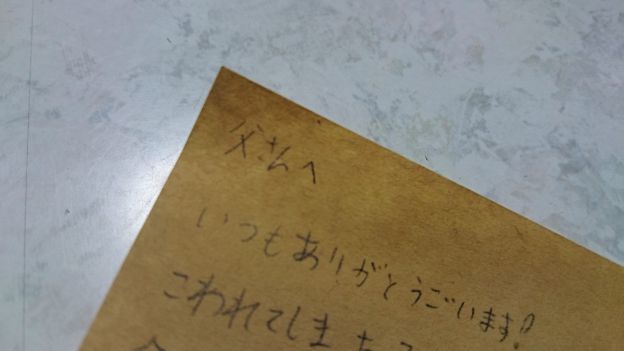 父さんへ
いつもありがとうございます!
こわれてしまっ